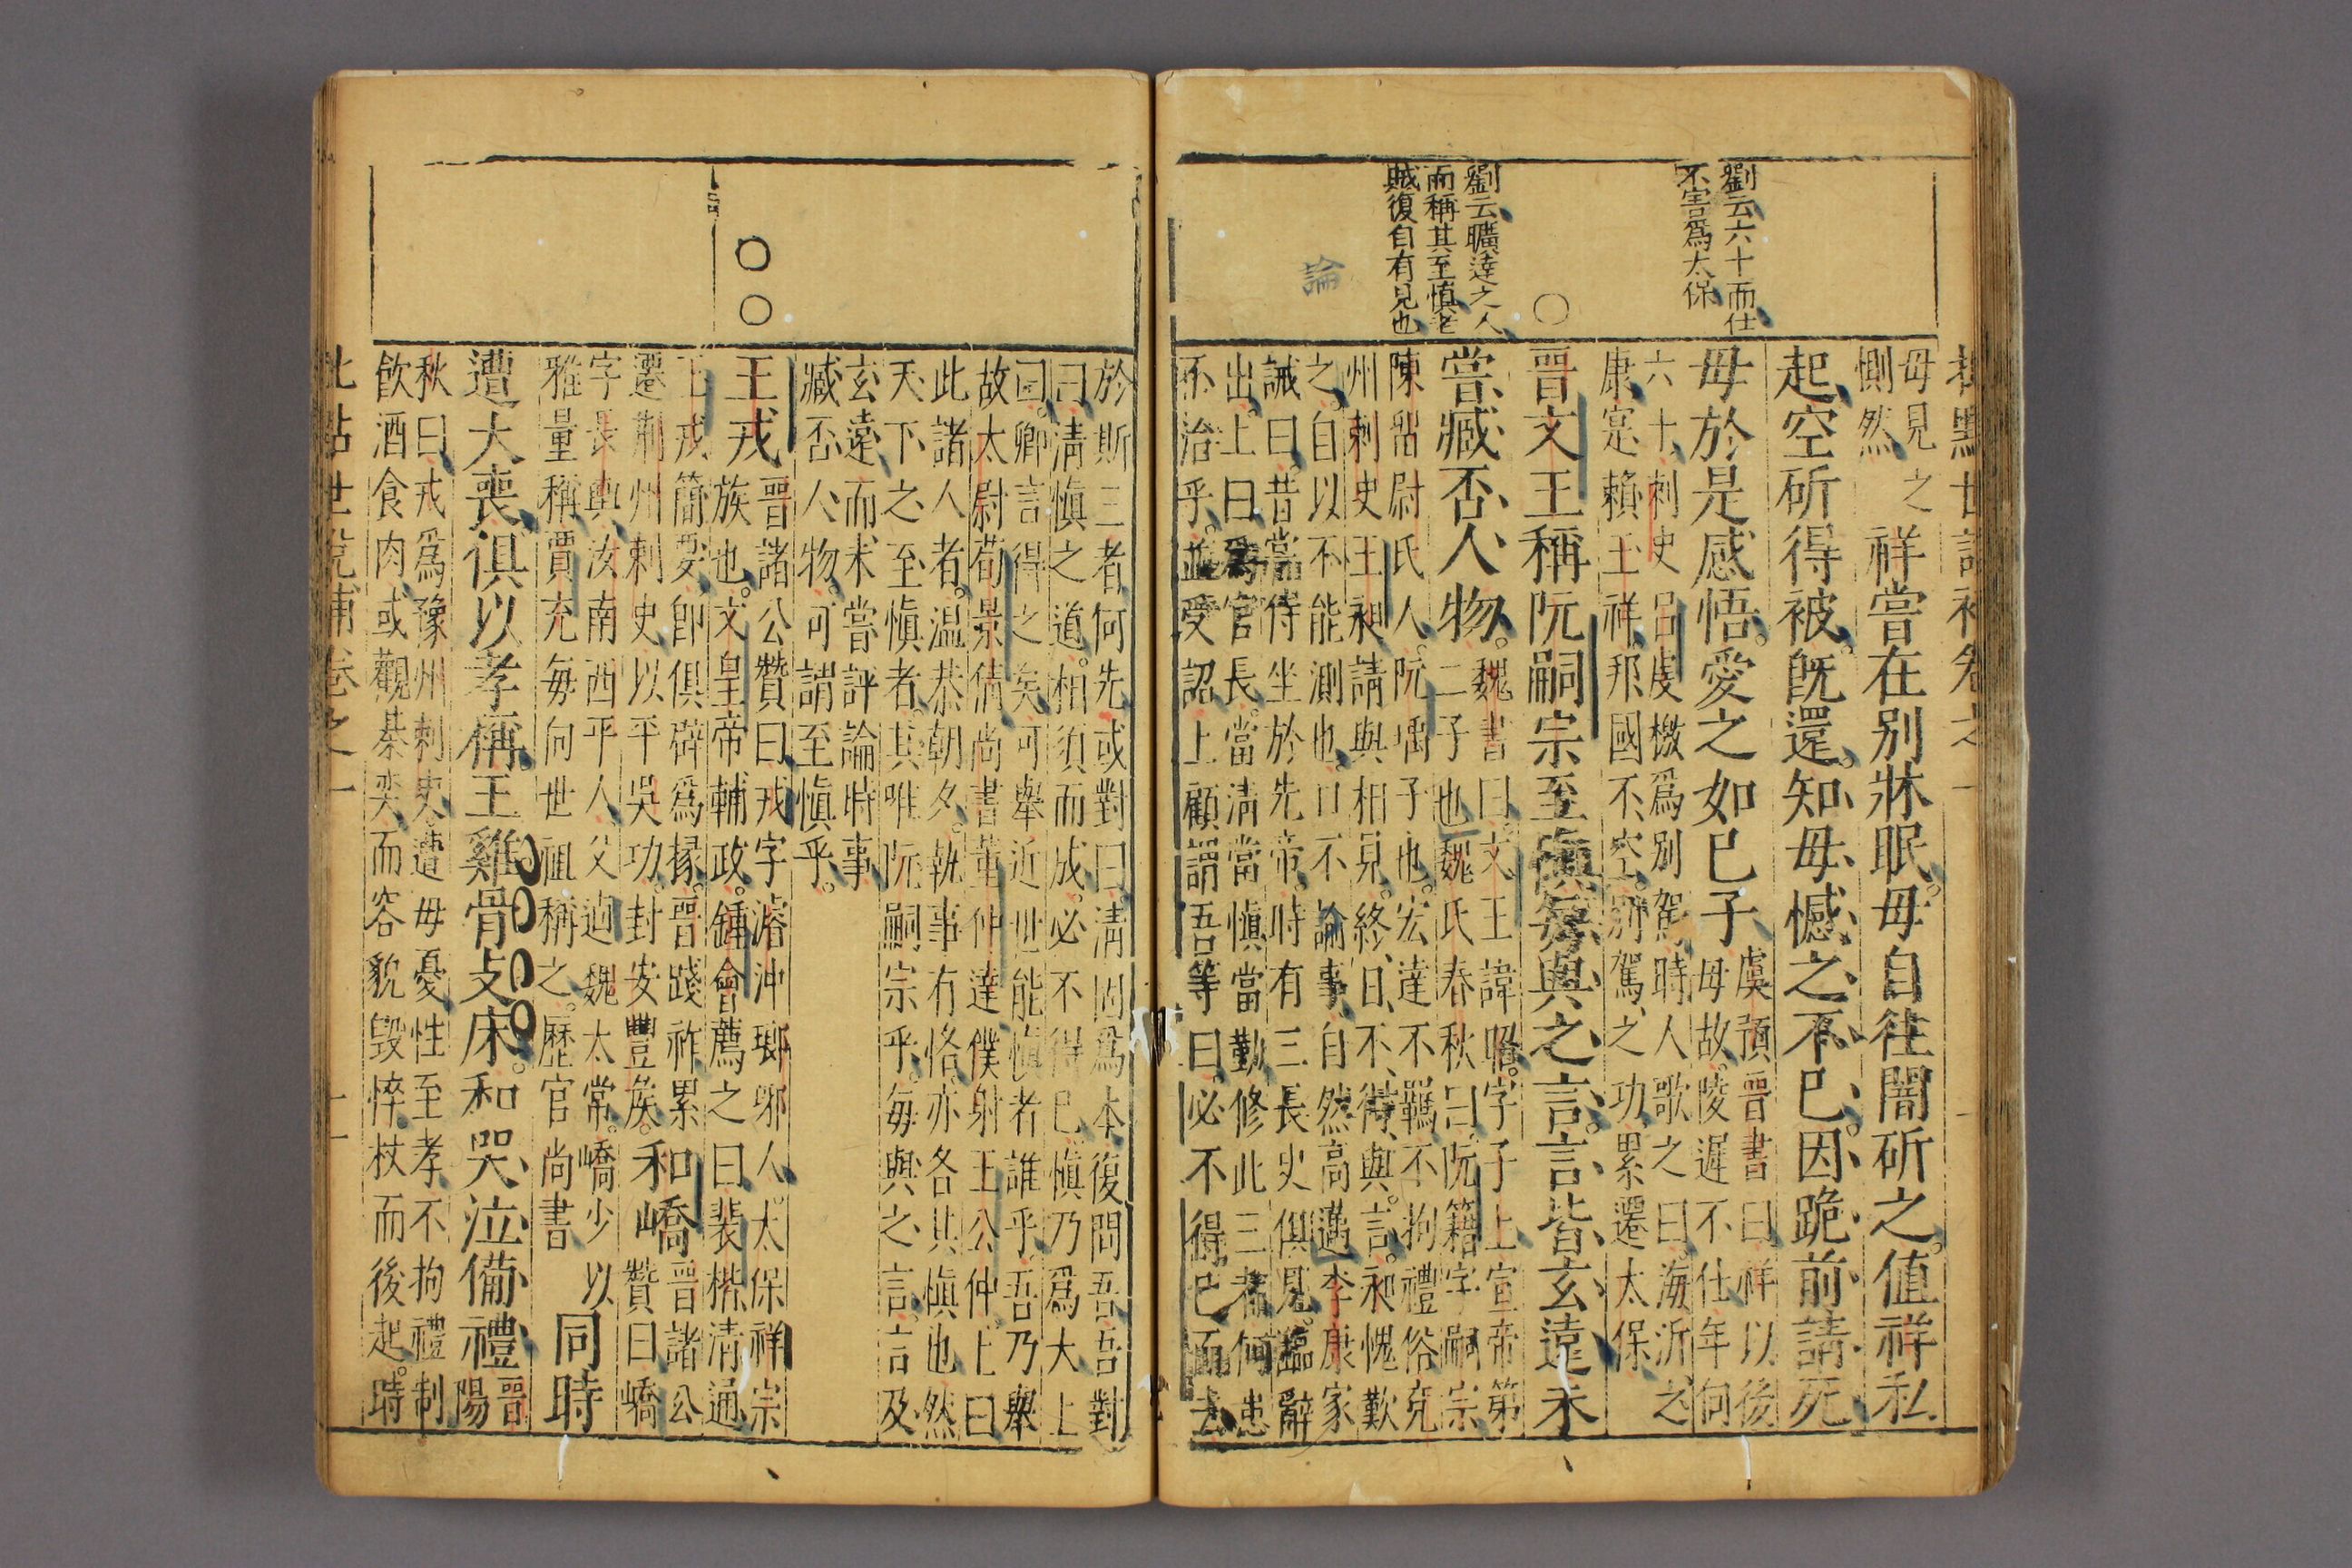 劉云六十而仕
不害爲太保
劉云曠達之人
而稱其至慎老
賊復自有見也
論
母見之
惻然
祥嘗在别牀眠。母自往闇斫之。值祥私
起、空斫得被。既還。知母憾之不已。因跪前請死
母於是感悟。愛之如已子
虞預晉書曰祥以後
母故。陵遲不仕年向
六十、刺史呂虔檄爲別駕、時人歌之曰。海沂之
康寔賴王祥、邦國不空。別駕之功、累遷太保
晉文王稱阮嗣宗至慎每與之言。言皆玄遠未
嘗臧否人物。
魏書曰、文王諱昭。字子上宣帝第
二子也魏氏春秋曰、阮籍字嗣宗
陳留尉氏人、阮瑀子也。宏達不羈不拘禮俗兖
州刺史王昶請與相見。終日不得與言。昶愧歎
之。自以不能測也。口不論事、自然高邁李康家
誡曰。昔嘗侍坐於先帝。時有三長史俱見。臨辭
出。上曰爲官長。當清當慎當勤修此三者何患
不治乎。並受詔上顧謂吾等曰。必不得已而去
於斯三者何先或對曰清固爲本復問吾吾對
曰清慎之道。相須而成。必不得已。慎乃爲大上
曰。卿言得之矣可舉近世能慎者誰乎。吾乃舉
故太尉荀景倩尚書董仲達僕射王公仲。上曰
此諸人者。温恭朝夕。執事有恪亦各其慎也然
天下之至慎者。其唯阮嗣宗乎。每與之言。言及
玄遠而未嘗評論時事
臧否人物。可謂至慎乎。
王戎
晉諸公贊曰戎字濬沖瑯琊人。太保祥宗
族也。文皇帝輔政。鍾會薦之曰裴楷清通
王戎簡要、即俱辟爲掾。晉踐祚累
遷荆州刺史以平吳功。封安豐矦。
和嶠
晉諸公
贊曰嶠
字長輿、汝南西平人父逌魏太常。嶠少以
雅量稱、賈充每向世祖稱之。歷官尚書
同時
遭大喪、俱以孝稱。王雞骨支床。和哭泣備禮
晉
陽
秋曰戎爲豫州刺史、遭母憂性至孝不拘禮制
飲酒食肉或觀棊奕而容貌毀悴杖而後起。時
批點世說補卷之一
十一